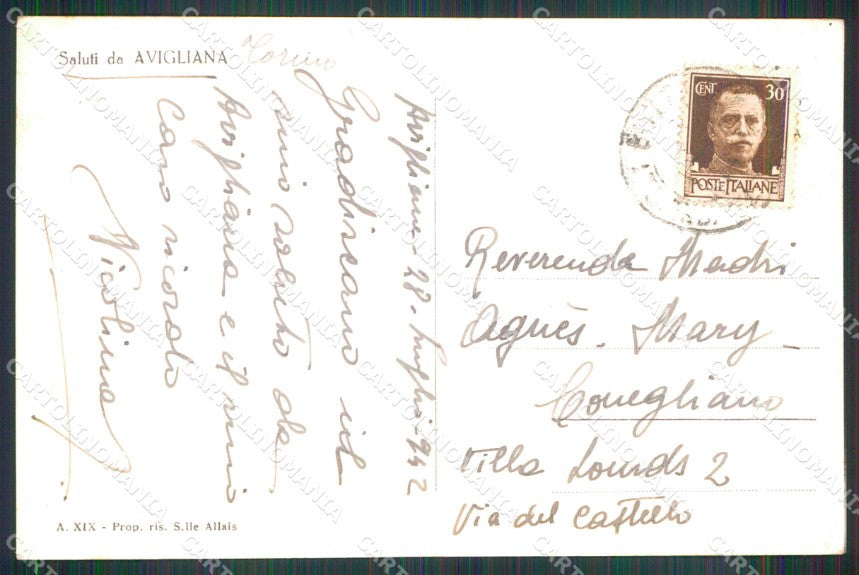 Saluti da AVIGLIANA Torino
Avigliana - 28 - Luglio - 942
Gradiscano il
mio saluto da
Avigliana e il mio
Caro ricordo
Nicolina
CENT 30
POSTE ITALIANE
Reverenda Madri
Agnès. Mary
Conegliano
Villa Lourds 2
Via del Castello
A. XIX - Prop. ris. S.lle Allais
CARTOLINOMANIA